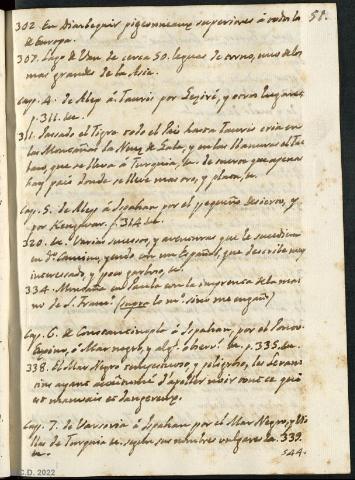 58.
302. En Diarbequir pigeonneaux superiores á todos los
de Europa.
307. Lago de Van de cerca 50. leguas de torno, uno de los
mas grandes de la Asia.
Cap. 4. de Alep á Tauris por Gezire, y otros lugares
p. 311. &c.
311. Pasado el Tigre todo el Pais hasta Tauris cria en
las Montañas la Nuez de Gala, y en las llanuras el Ta-
baco, que se lleva á Turquia, &c. de suerte que apenas
hay pais donde se lleve mas oro, y plata, &c.
Cap. 5. de Alep á Ispahan por el pequeño desierto, y
por Kengavar. p. 314. &c.
320. &c. Varios sucesos, y aventuras que le sucedieron
en el Camino, yendo con un Español, que describe muy
interesado, y poco garboso, &c.
334. Montaña en Santa con la impresa de la ma-
no de S. Franco. (supra lo no. si no me engaño)
Cap. 6. de Constantinopla á Ispahan, por el Ponto-
Euxino, ó Mar negro, y algs. observs. &c. p. 335. &c.
338. El Mar Negro tempestuoso, y peligroso, les Levan-
tins ayant accoutumé d'apeller noir tout ce qui
est mauvais et dangereux.
Cap. 7. de Varsovia á Ispahan por el Mar Negro, y Vi-
llas de Turquia &c. segun sus nombres vulgares &c. 339.
&c.
344.
C.D. 2022